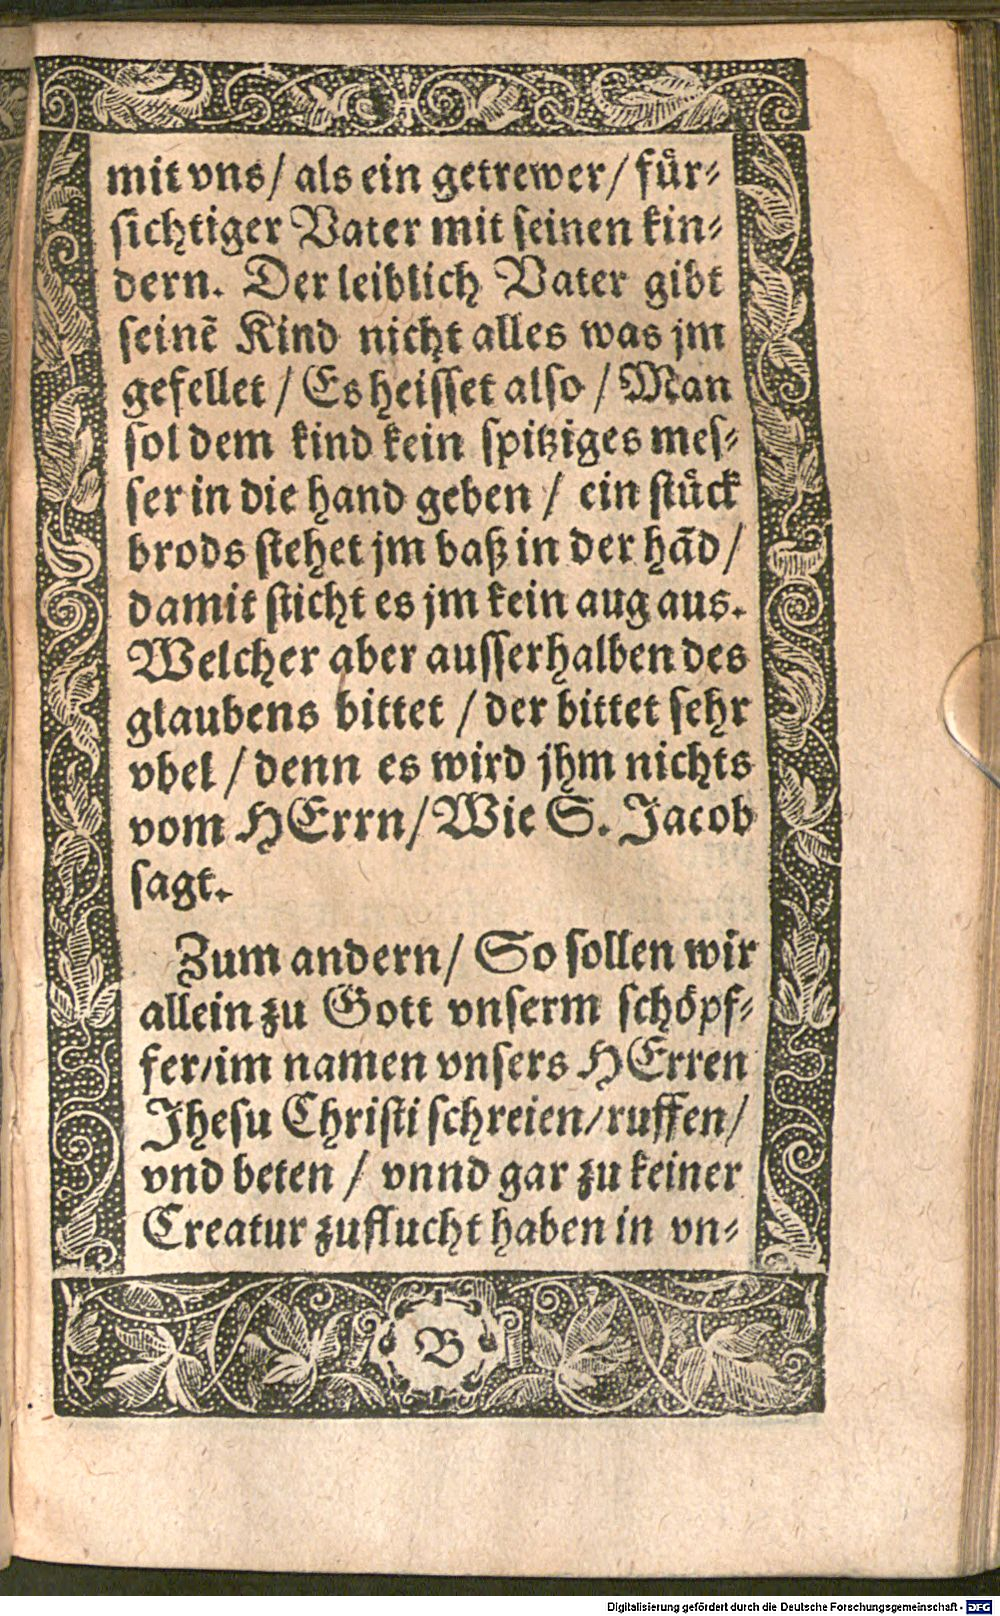 mit vns/ als ein getrewer/ fuͤr⸗
sichtiger Vater mit seinen kin⸗
dern. Der leiblich Vater gibt
seinẽ Kind nicht alles was jm
gefellet / Es heisset also / Man
sol dem kind kein spitziges mes⸗
ser in die hand geben / ein stuͤck
brods stehet jm baß in der hãd/
damit sticht es jm kein aug aus.
Welcher aber ausserhalben des
glaubens bittet / der bittet sehr
vbel / denn es wird jhm nichts
vom HErrn/ Wie S. Jacob
sagt.
Zum andern/ So sollen wir
allein zu Gott vnserm schoͤpf⸗
fer/ im namen vnsers HErren
Jhesu Christi schreien/ ruffen/
vnd beten / vnnd gar zu keiner
Creatur zuflucht haben in vn⸗
B
Digitalisierung gefördert durch die Deutsche Forschungsgemeinschaft - DFG